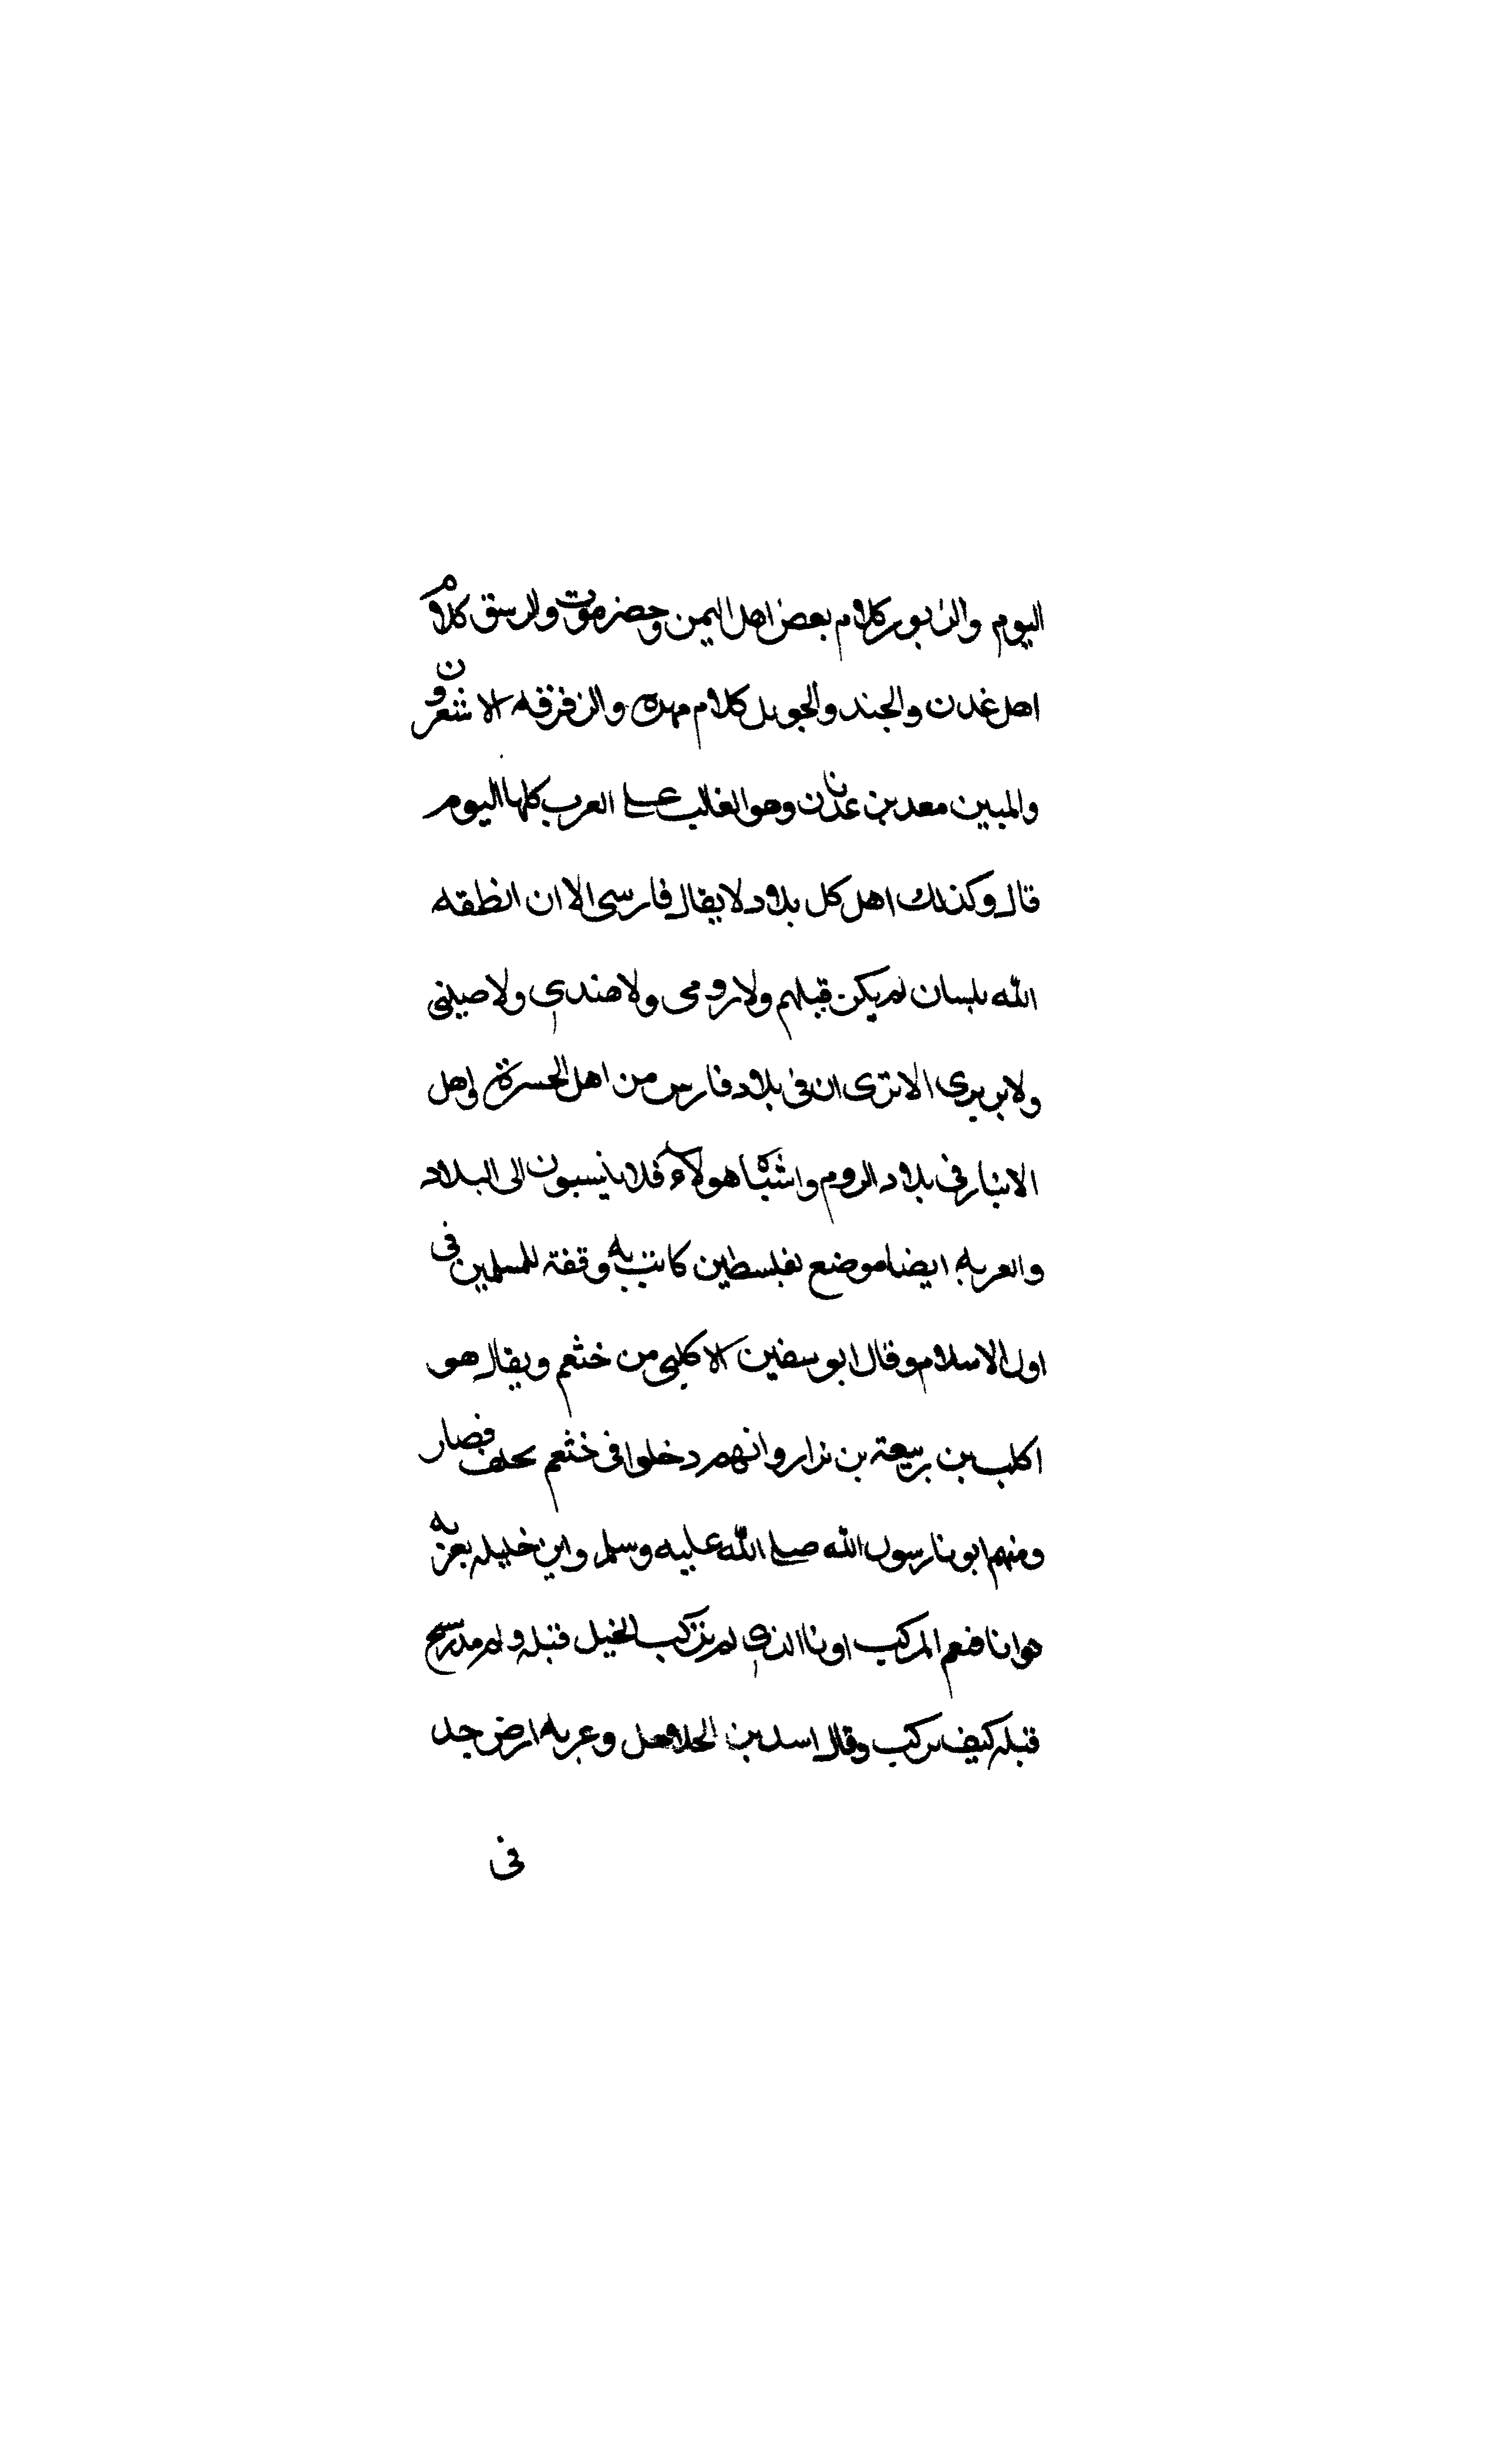 اليوم والزبور كلام بعض اهل اليمن وحضرموت والرسق كلام
اهل عدن والجند والحويل كلام مهرة والزقزقه الاشعرون
والمبين معد بن عدنان وهو الغالب على العرب كلها اليوم
قال وكذلك اهل كل بلاد لا يقال فارسي الا ان انطقه
الله بلسان لم يكن قبلهم ولا رومى ولا هندي ولا صينى
ولا بربرى الا ترى ان فى بلاد فارس من اهل الحيرة واهل
الانبار فى بلاد الروم واشباه هولاء فلا ينسبون الى البلاد
والعربه ايضا موضع بفلسطين كانت به وقفة للمسلمين فى
اول الاسلام وقال ابو سفين الاكلبى من خثعم ويقال هو
اكلب بن ربيعة بن نزار وانهم دخلوا فى خثعم بحلف فصار
ومنهم ابونا رسول الله صلى الله عليه وسلم وابن خليله بعربه
بوانا فنعم المركب اونا الذي لم تركب الخيل قبله ولم يدر شيخ
قبله كيف يركب وقال اسد بن الجلاهل وعربه ارض جد
فى